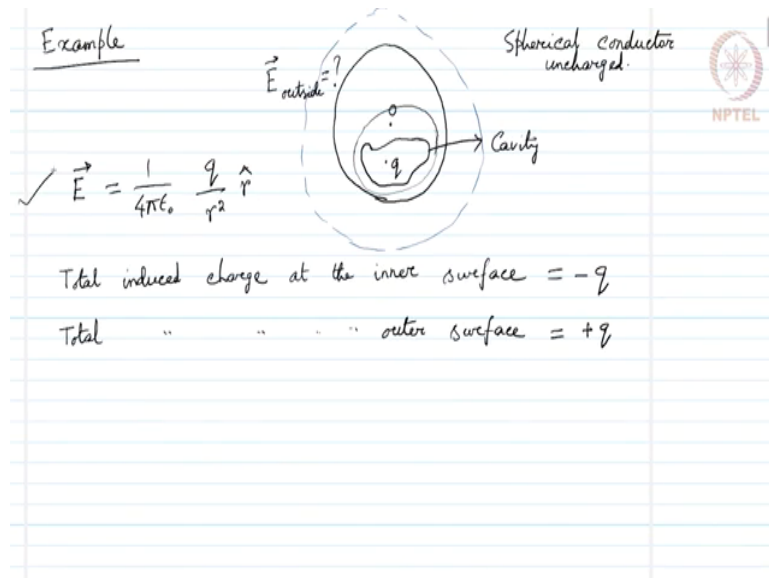 Example
Spherical conductor
uncharged.
NPTEL
E⃗ outside = ?
O
Cavity
q
E⃗ = 1/4πε₀ q/r² r̂
Total induced charge at the inner surface = -q
Total " " " " outer surface = +q